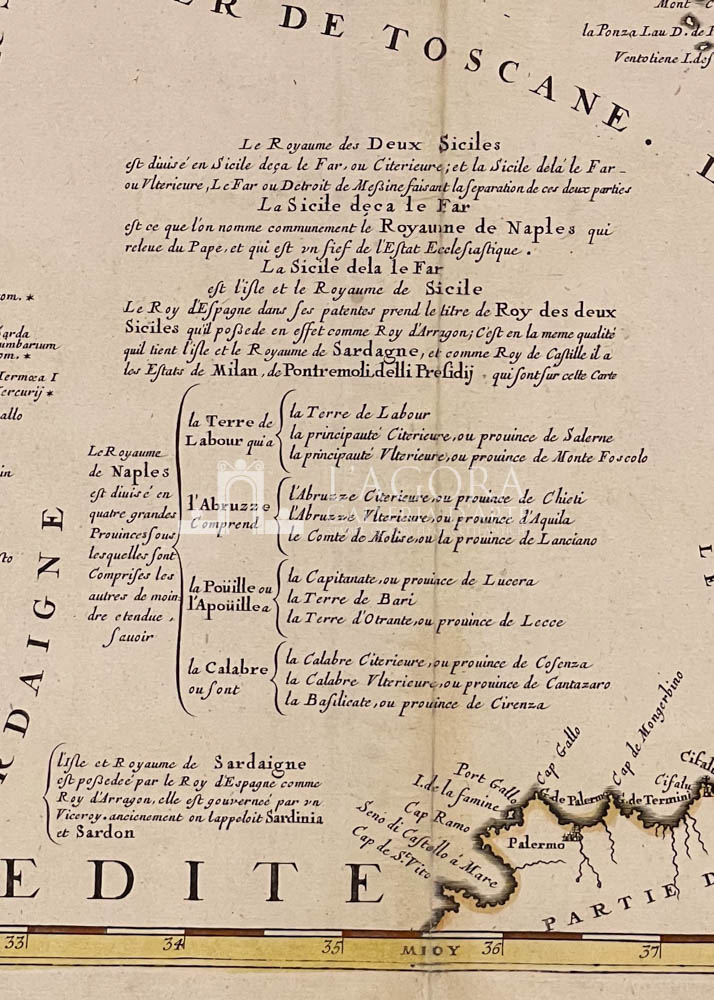 ER DE TOSCANE.
Mont
la Ponza I. au D. de
Ventotiene I. des
Le Royaume des Deux Siciles
est diuisé en Sicile deça le Far, ou Citerieure; et la Sicile delà le Far
ou Vlterieure, Le Far ou Detroit de Messine faisant la separation de ces deux parties
La Sicile deça le Far
est ce que l'on nomme communement le Royaume de Naples qui
releue du Pape, et qui est vn fief de l'Estat Ecclesiastique.
La Sicile dela le Far
est l'isle et le Royaume de Sicile
Le Roy d'Espagne dans ses patentes prend le titre de Roy des deux
Siciles qu'il possede en effet comme Roy d'Arragon; C'est en la meme qualité
quil tient l'isle et le Royaume de Sardagne, et comme Roy de Castille il a
les Estats de Milan, de Pontremoli, delli Presidij qui sont sur cette Carte
om. *
arda
umbarium
om. *
ermœa I
ercurij *
allo
in
sto
Le Royaume
de Naples
est diuisé en
quatre grandes
Prouinces sous
lesquelles sont
Comprises les
autres de moin
dre etendue,
sauoir
la Terre de
Labour qui a
la Terre de Labour
la principauté Citerieure, ou prouince de Salerne
la principauté Vlterieure, ou prouince de Monte Foscolo
l'Abruzze
Comprend
l'Abruzze Citerieure, ou prouince de Chieti
l'Abruzze Vlterieure, ou prouince d'Aquila
le Comté de Molise, ou la prouince de Lanciano
la Poüille ou
l'Apoüille a
la Capitanate, ou prouince de Lucera
la Terre de Bari
la Terre d'Otrante, ou prouince de Lecce
la Calabre
ou sont
la Calabre Citerieure, ou prouince de Cosenza
la Calabre Vlterieure, ou prouince de Cantazaro
la Basilicate, ou prouince de Cirenza
L'AGORA
RDAIGNE
l'Isle et Royaume de Sardaigne
est possedeé par le Roy d'Espagne comme
Roy d'Arragon, elle est gouverneé par vn
Viceroy. anciennement on lappeloit Sardinia
et Sardon
Port Gallo
I. de la famine
Cap Gallo
Cap de Mongerbino
Cifalu
Cifalu
G. de Palermo
G. de Termini
Cap Ramo
Seno di Castello à Mare
Cap de St. Vito
Palermo
EDITE
PARTIE D
33
34
35
MIDY
36
37